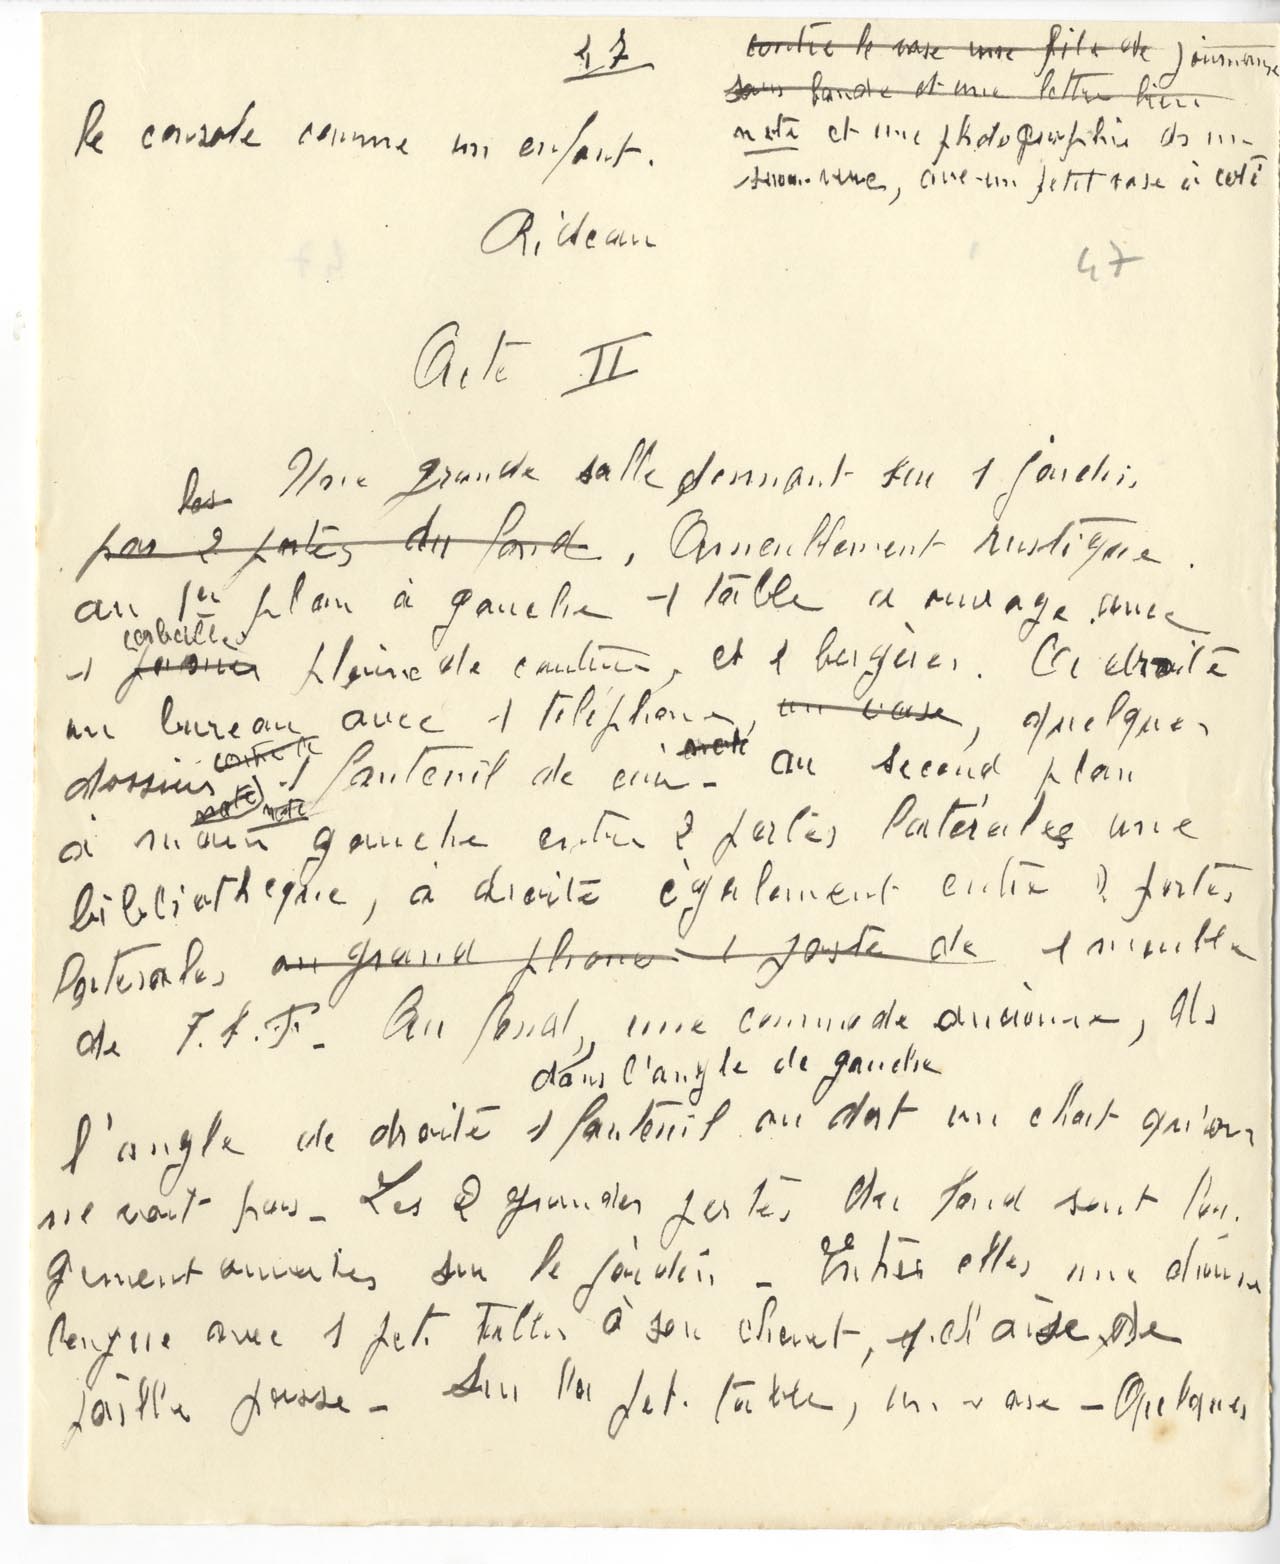 47
contre le vase une pile de journaux
sous bande et une lettre bien
note et une photographie de
, avec un petit vase à coté
le console comme un enfant.
Rideau
47
Acte II
Une grande salle donnant sur 1 jardin
les
par 2 portes du fond, Ameublement rustique.
au 1er plan à gauche 1 table à ouvrage avec
corbeille
1 pleine de couture, et 1 bergère. A droite
un bureau avec 1 téléphone, un vase, quelques
contre le note
dossiers 1 fauteuil de cuir - au second plan
note note
à main gauche entre 2 portes latérales une
bibliothèque, à droite également entre 2 portes
latérales un grand phono 1 poste de 1 meuble
de T.S.F. - Au fond, une commode ancienne, ds
dans l'angle de gauche
l'angle de droite 1 fauteuil où dort un chat qu'on
ne voit pas - Les 2 grandes portes du fond sont lar.
gement ouvertes sur le jardin - Entre elles une chaise
longue avec 1 pet. table à son chevet, 1 chaise de
paille basse - Sur la pet. table, un vase - Quelques